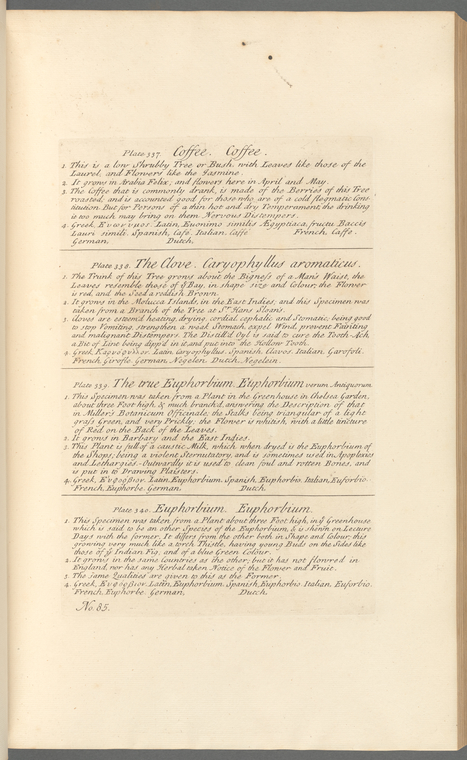 Plate 337. Coffee. Coffee.
1. This is a low Shrubby Tree or Bush, with Leaves like those of the
Laurel, and Flowers like the Jasmine.
2. It grows in Arabia Felix, and flowers here in April and May.
3. The Coffee that is commonly drank, is made of the Berries of this Tree
roasted, and is accounted good for those who are of a cold flegmatic Cons-
titution. But, for Persons of a thin hot and dry Temperament, the drinking
it too much may bring on them Nervous Distempers.
4. Greek, Latin, Euonimo similis Ægyptiaca, fructu Baccis
Lauri simili. Spanish, Cafe. Italian, Caffe French, Caffe.
German, Dutch,
Plate 338. The Clove. Caryophyllus aromaticus.
1. The Trunk of this Tree grows about the Bigness of a Man's Waist, the
Leaves resemble those of ye Bay, in shape size and Colour; the Flower
is red, and the Seed a reddish Brown.
2. It grows in the Molucca Islands, in the East Indies; and this Specimen was
taken from a Branch of the Tree at Sr. Hans Sloan's.
3. Cloves are esteem'd heating, drying, cordial, cephalic and Stomatic; being good
to stop Vomiting, strengthen a weak Stomach, expel Wind, prevent Fainting
and malignant Distempers. The Distill'd Oyl is said to cure the Tooth-Ach,
a Bit of Lint being dipp'd in it and put into the Hollow Tooth.
4. Greek, Latin, Caryophyllus. Spanish, Clavos. Italian, Garofoli.
French, Girofle. German, Nägelen. Dutch, Negelein.
Plate 339. The true Euphorbium. Euphorbium verum Antiquorum.
1. This Specimen was taken from a Plant in the Greenhouse in Chelsea Garden,
about three Foot high, & much branch'd, answering the Description of that
in Miller's Botanicum Officinale, the Stalks being triangular of a light
grass Green, and very Prickly; the Flower is whitish, with a little tincture
of Red on the Back of the Leaves.
2. It grows in Barbary and the East Indies.
3. This Plant is full of a caustic Milk, which when dryed is the Euphorbium of
the Shops; being a violent Sternutatory, and is sometimes used in Apoplexies
and Lethargies. Outwardly it is used to clean foul and rotten Bones, and
is put in to Drawing Plaisters.
4. Greek, Ευφορβιον. Latin, Euphorbium. Spanish, Euphorbio. Italian, Euforbio.
French, Euphorbe. German, Dutch,
Plate 340. Euphorbium. Euphorbium.
1. This Specimen was taken from a Plant about three Foot high, in ye Greenhouse
which is said to be an other Species of the Euphorbium, & is shewn on Lecture
Days with the former. It differs from the other both in Shape and Colour; this
growing very much like a torch Thistle, having young Buds on the Sides like
those of ye Indian Fig, and of a blue Green Colour.
2. It grows in the same Countries as the other; but it has not flowred in
England, nor has any Herbal taken Notice of the Flower and Fruit.
3. The same Qualities are given to this as the Former.
4. Greek, Ευφορβιον. Latin, Euphorbium. Spanish, Euphorbio. Italian, Euforbio.
French, Euphorbe. German, Dutch,
No. 85.